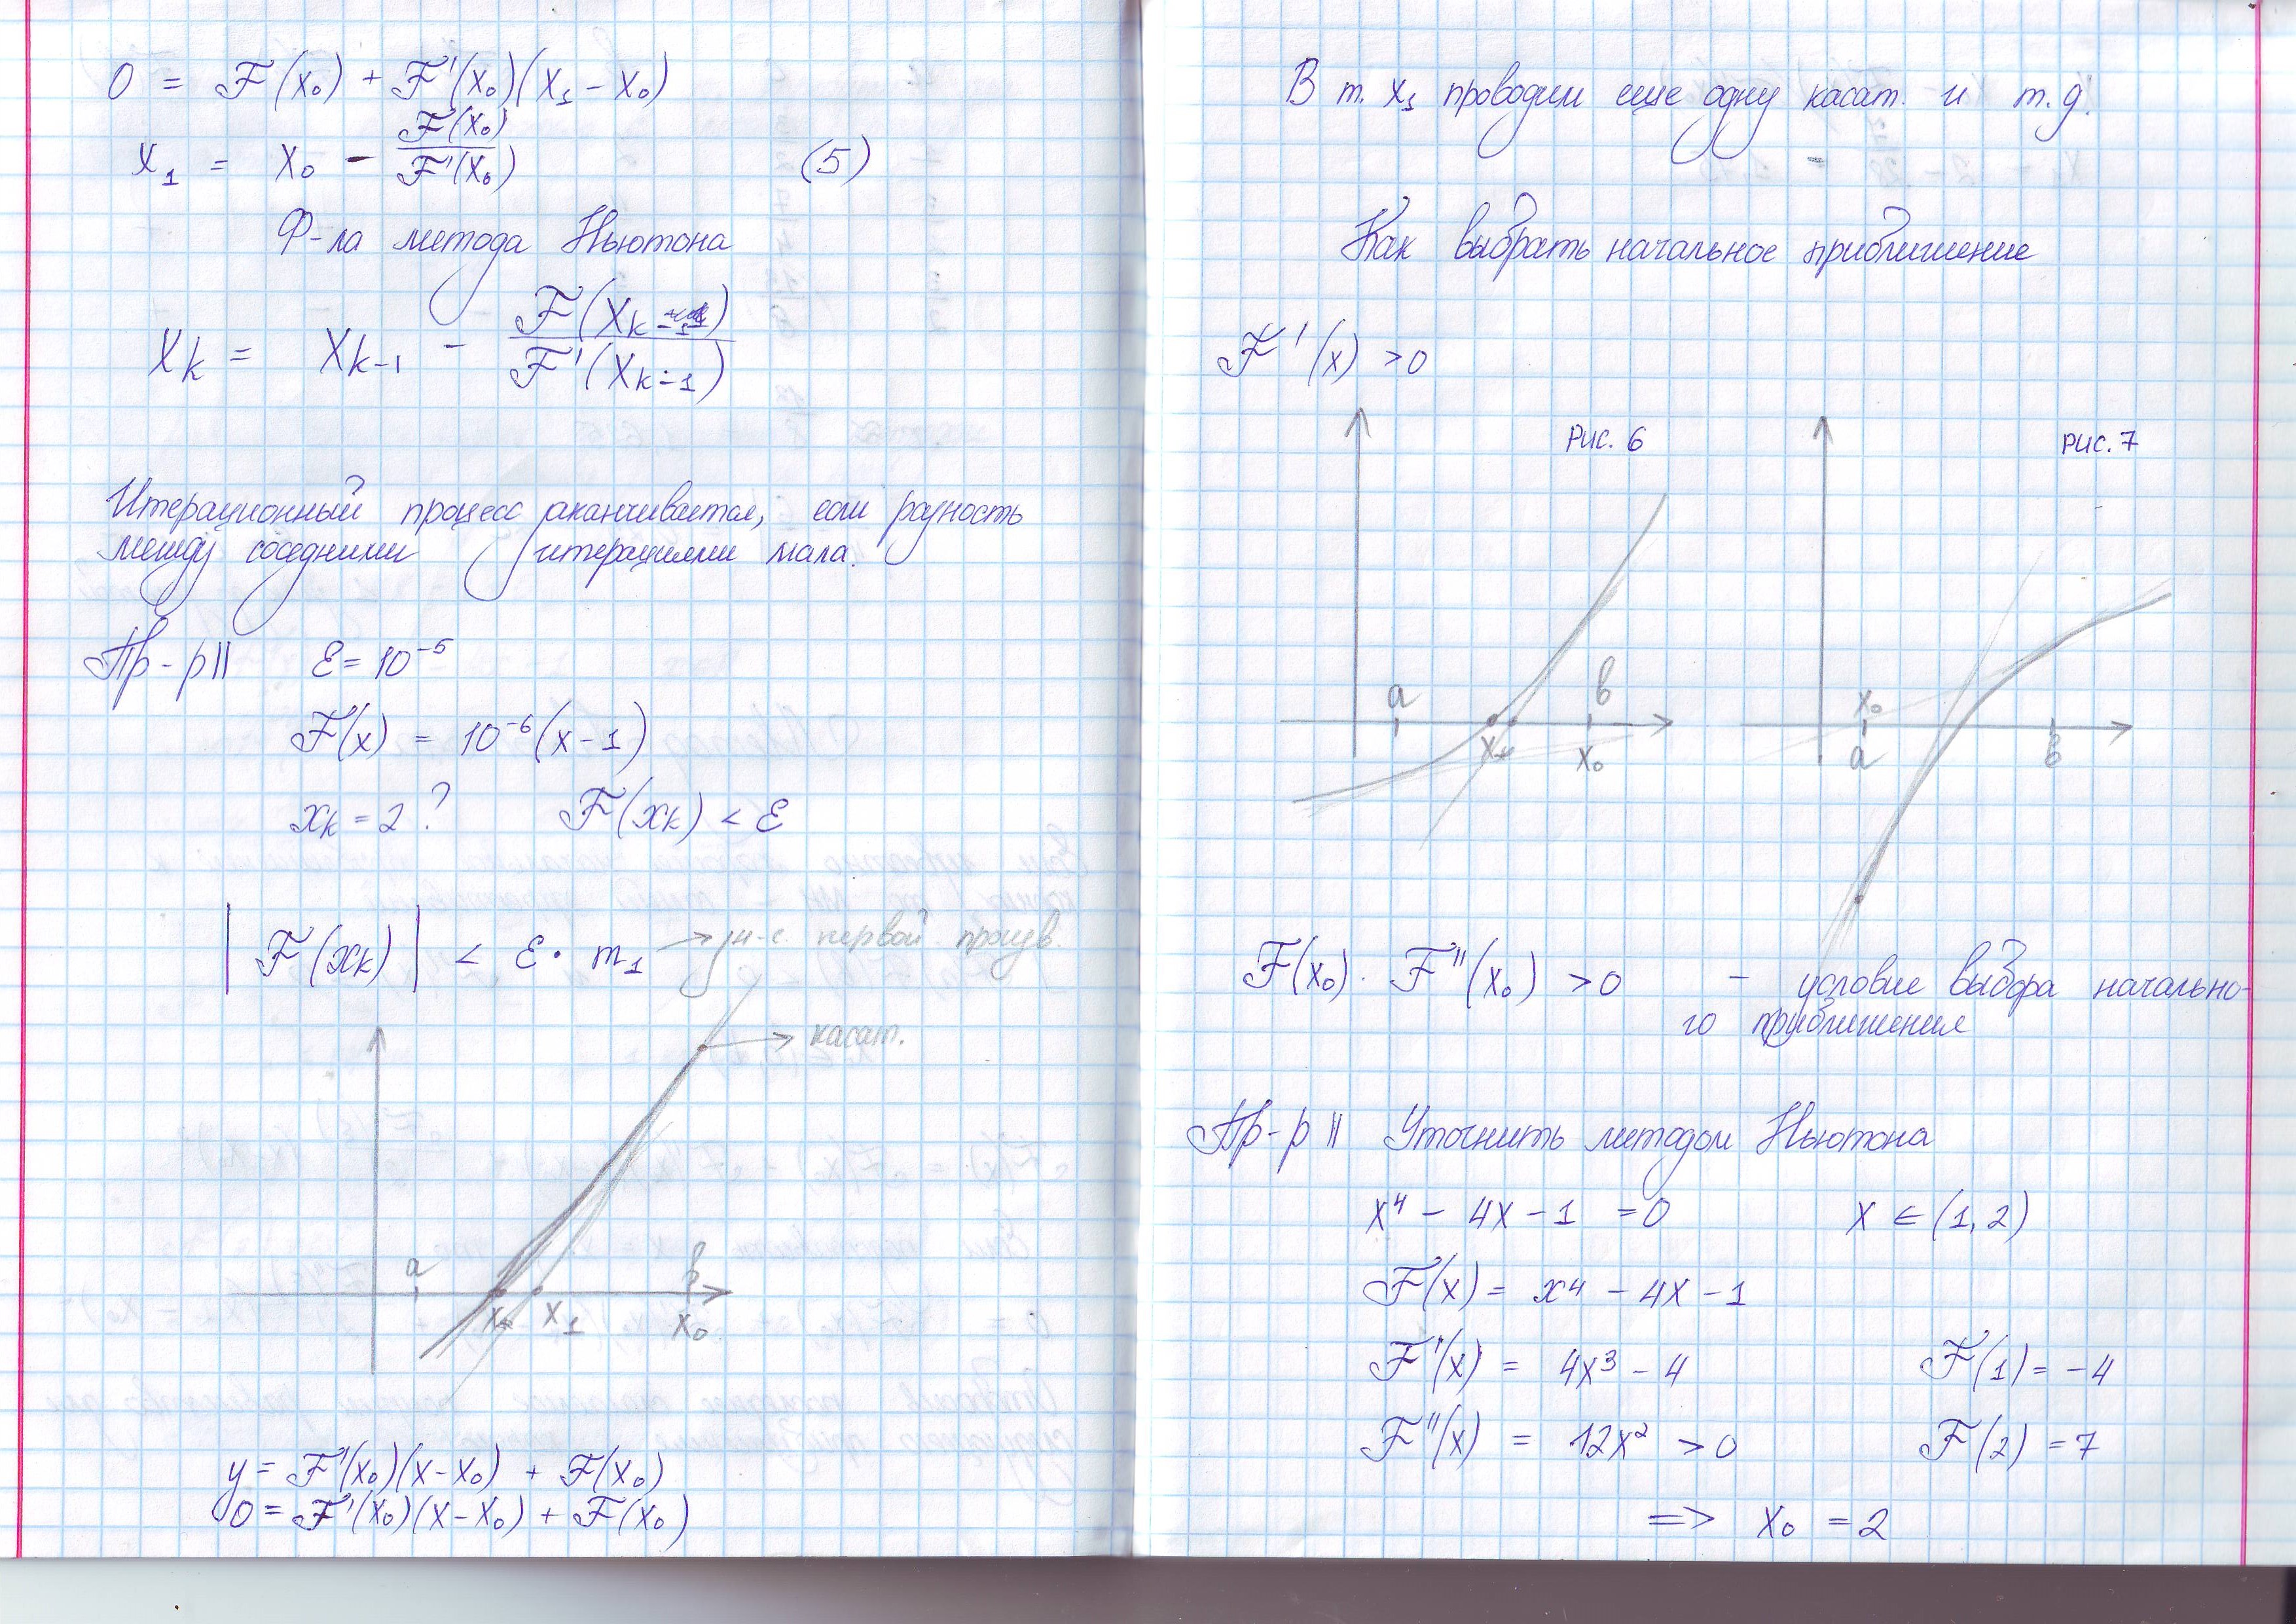 0 = F(x₀) + F'(x₀)(x₁ - x₀)
x₁ = x₀ - F(x₀)/F'(x₀) (5)
Ф-ла метода Ньютона
x_k = x_{k-1} - F(x_{k-1})/F'(x_{k-1})
Итерационный процесс оканчивается, если разность
между соседними итерациями мала.
Пр-р|| ε = 10⁻⁵
F(x) = 10⁻⁶(x-1)
x_k = 2 ? F(x_k) < ε
|F(x_k)| < ε · m₁ → первой произв.
→ касат.
a b
x* x₁ x₀
y = F'(x₀)(x-x₀) + F(x₀)
0 = F'(x₀)(x-x₀) + F(x₀)
В т. x₁ проводим еще одну касат. и т.д.
Как выбрать начальное приближение
F'(x) > 0
рис. 6 рис. 7
a b x₀
x* x₀ a b
F(x₀) · F''(x₀) > 0 - условие выбора начально-
го приближения
Пр-р || Уточнить методом Ньютона
x⁴ - 4x - 1 = 0 x ∈ (1, 2)
F(x) = x⁴ - 4x - 1
F'(x) = 4x³ - 4 F(1) = -4
F''(x) = 12x² > 0 F(2) = 7
=> x₀ = 2